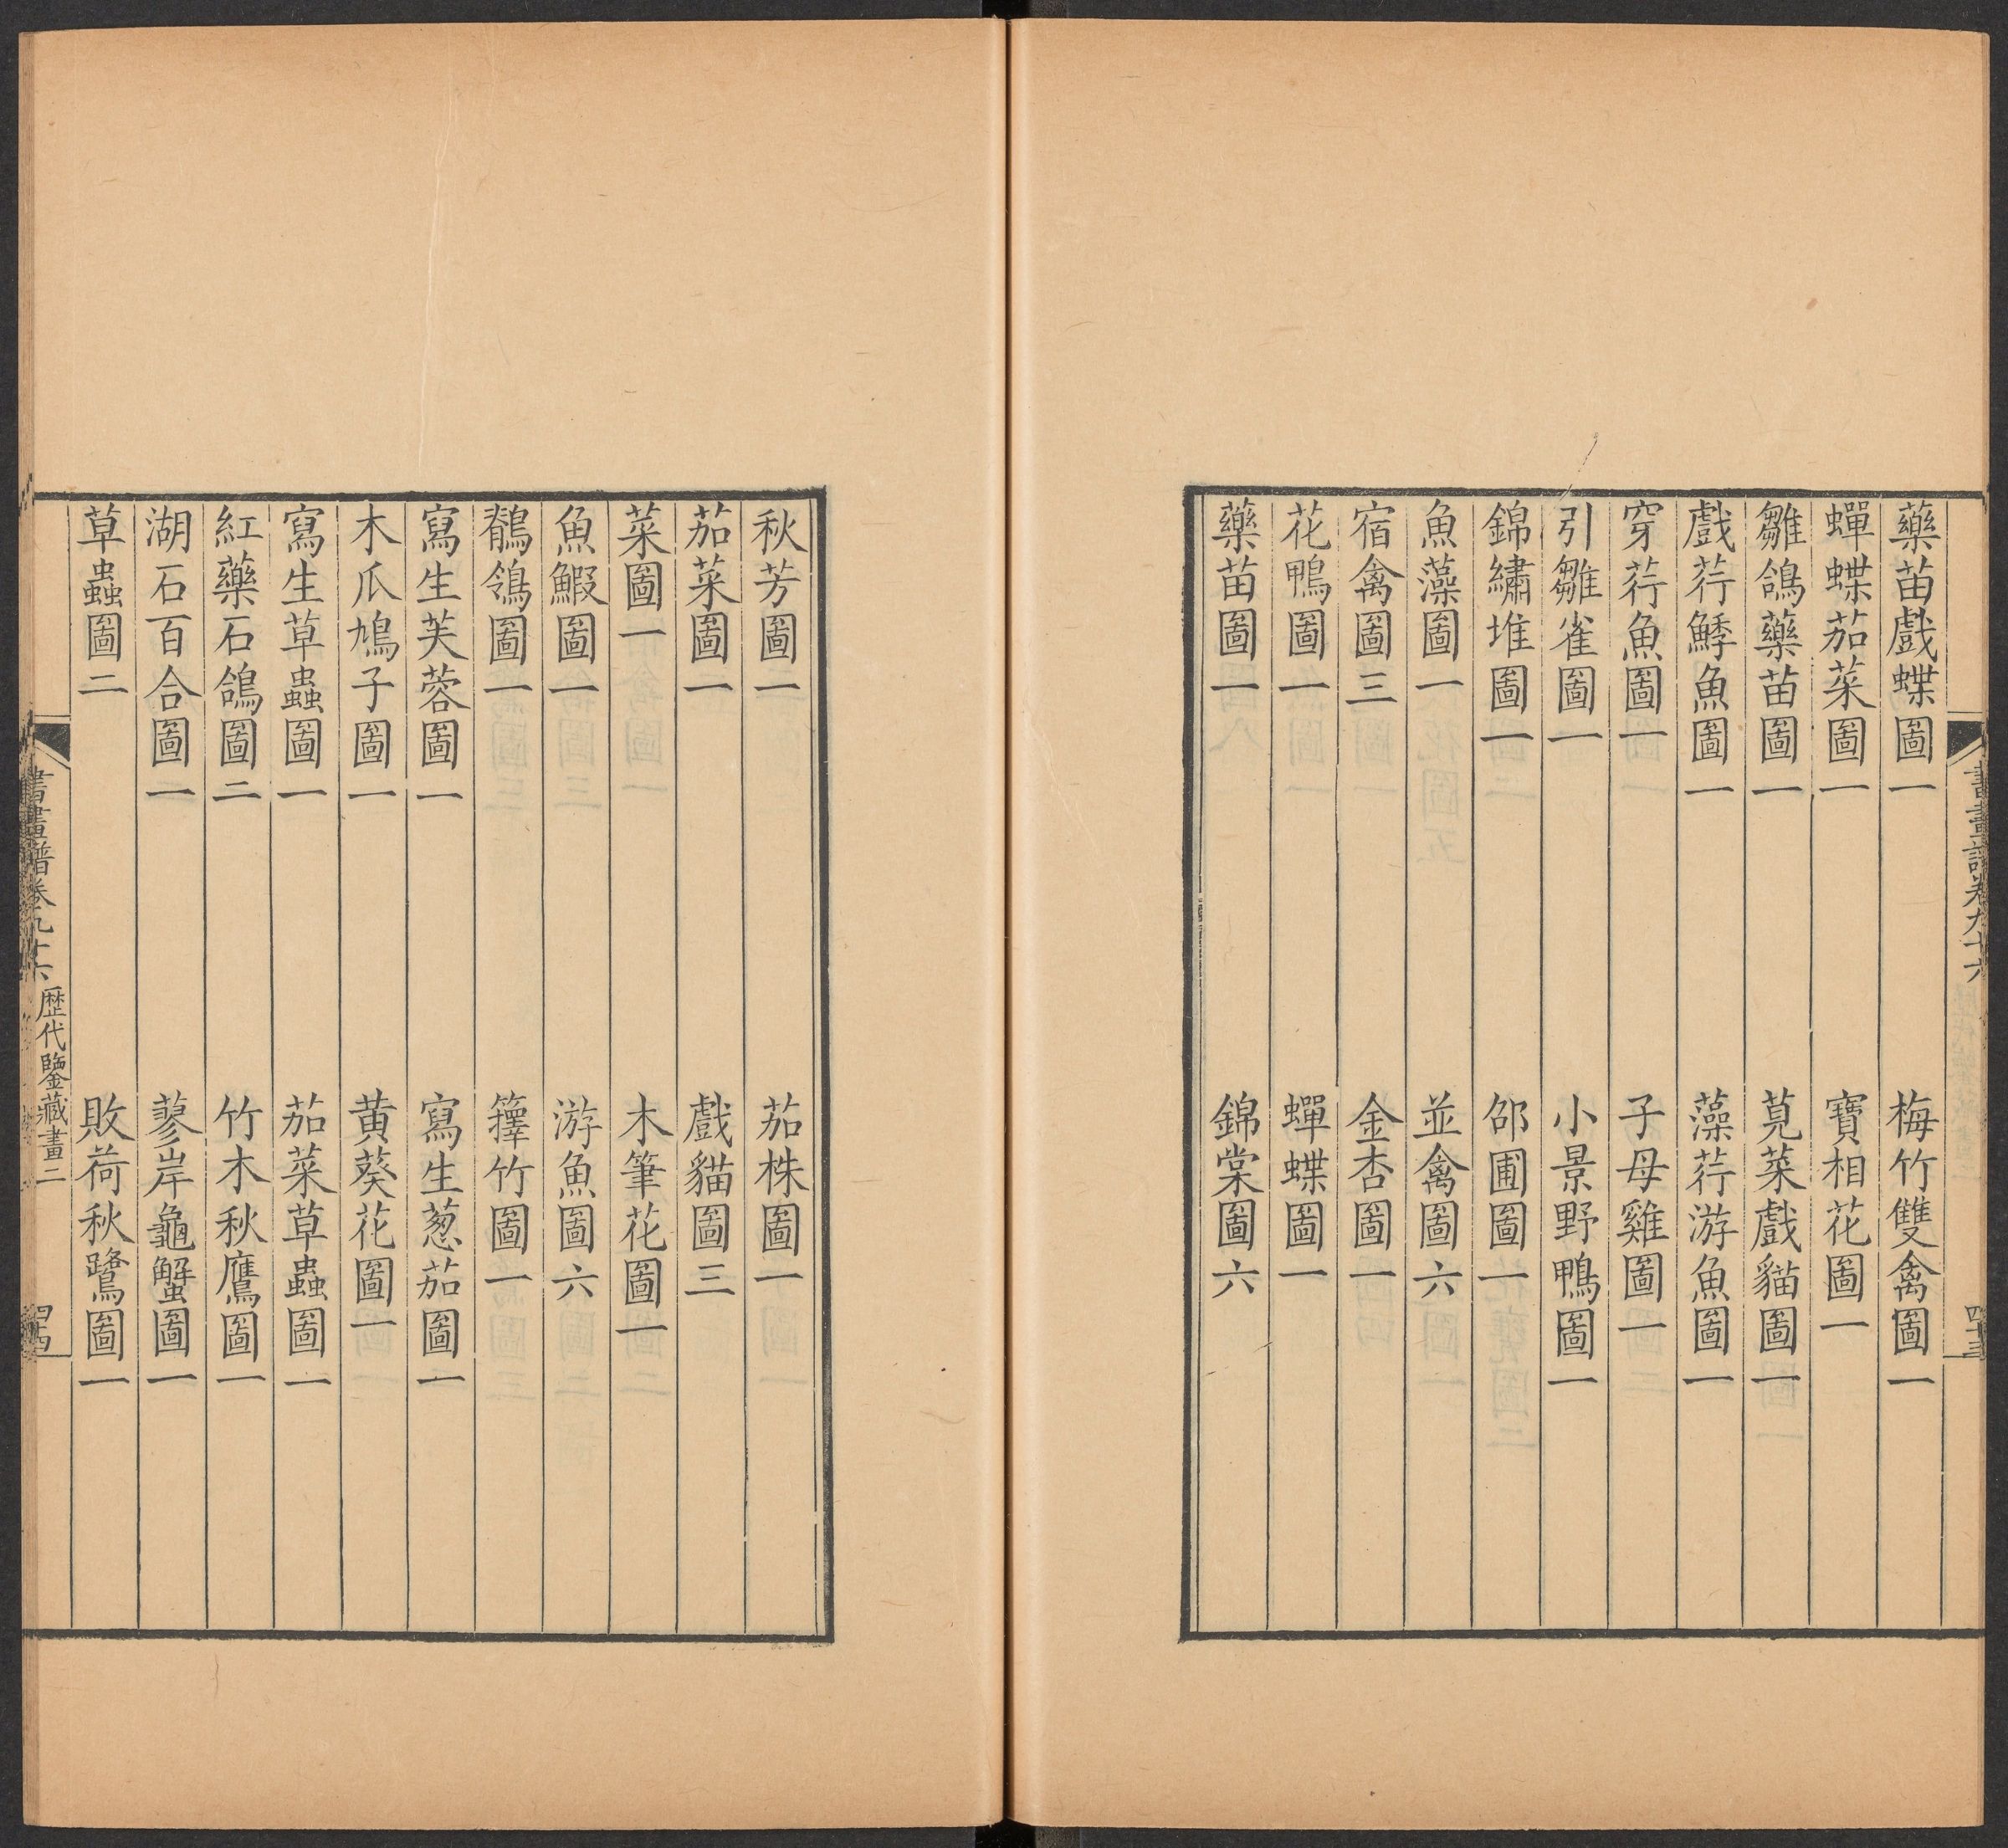 書畫譜卷九十六
四十三
藥苗戲蝶圖一　梅竹雙禽圖一
蟬蝶茄菜圖一　寶相花圖一
雛鴿藥苗圖一　莧菜戲貓圖一
戲荇鯚魚圖一　藻荇游魚圖一
穿荇魚圖一　子母雞圖一
引雛雀圖一　小景野鴨圖一
錦繡堆圖一　邵圃圖一
魚藻圖一　並禽圖六
宿禽圖三　金杏圖一
花鴨圖一　蟬蝶圖一
藥苗圖一　錦棠圖六
秋芳圖一　茄株圖一
茄菜圖一　戲貓圖三
菜圖一　木筆花圖一
魚鰕圖一　游魚圖六
鶺鴒圖一　籜竹圖一
寫生芙蓉圖一　寫生葱茄圖一
木瓜鳩子圖一　黄葵花圖一
寫生草蟲圖一　茄菜草蟲圖一
紅藥石鴿圖二　竹木秋鷹圖一
湖石百合圖一　蓼岸龜蟹圖一
草蟲圖二　敗荷秋鷺圖一
書畫譜卷九十六　歷代鑒藏畫二　四十四